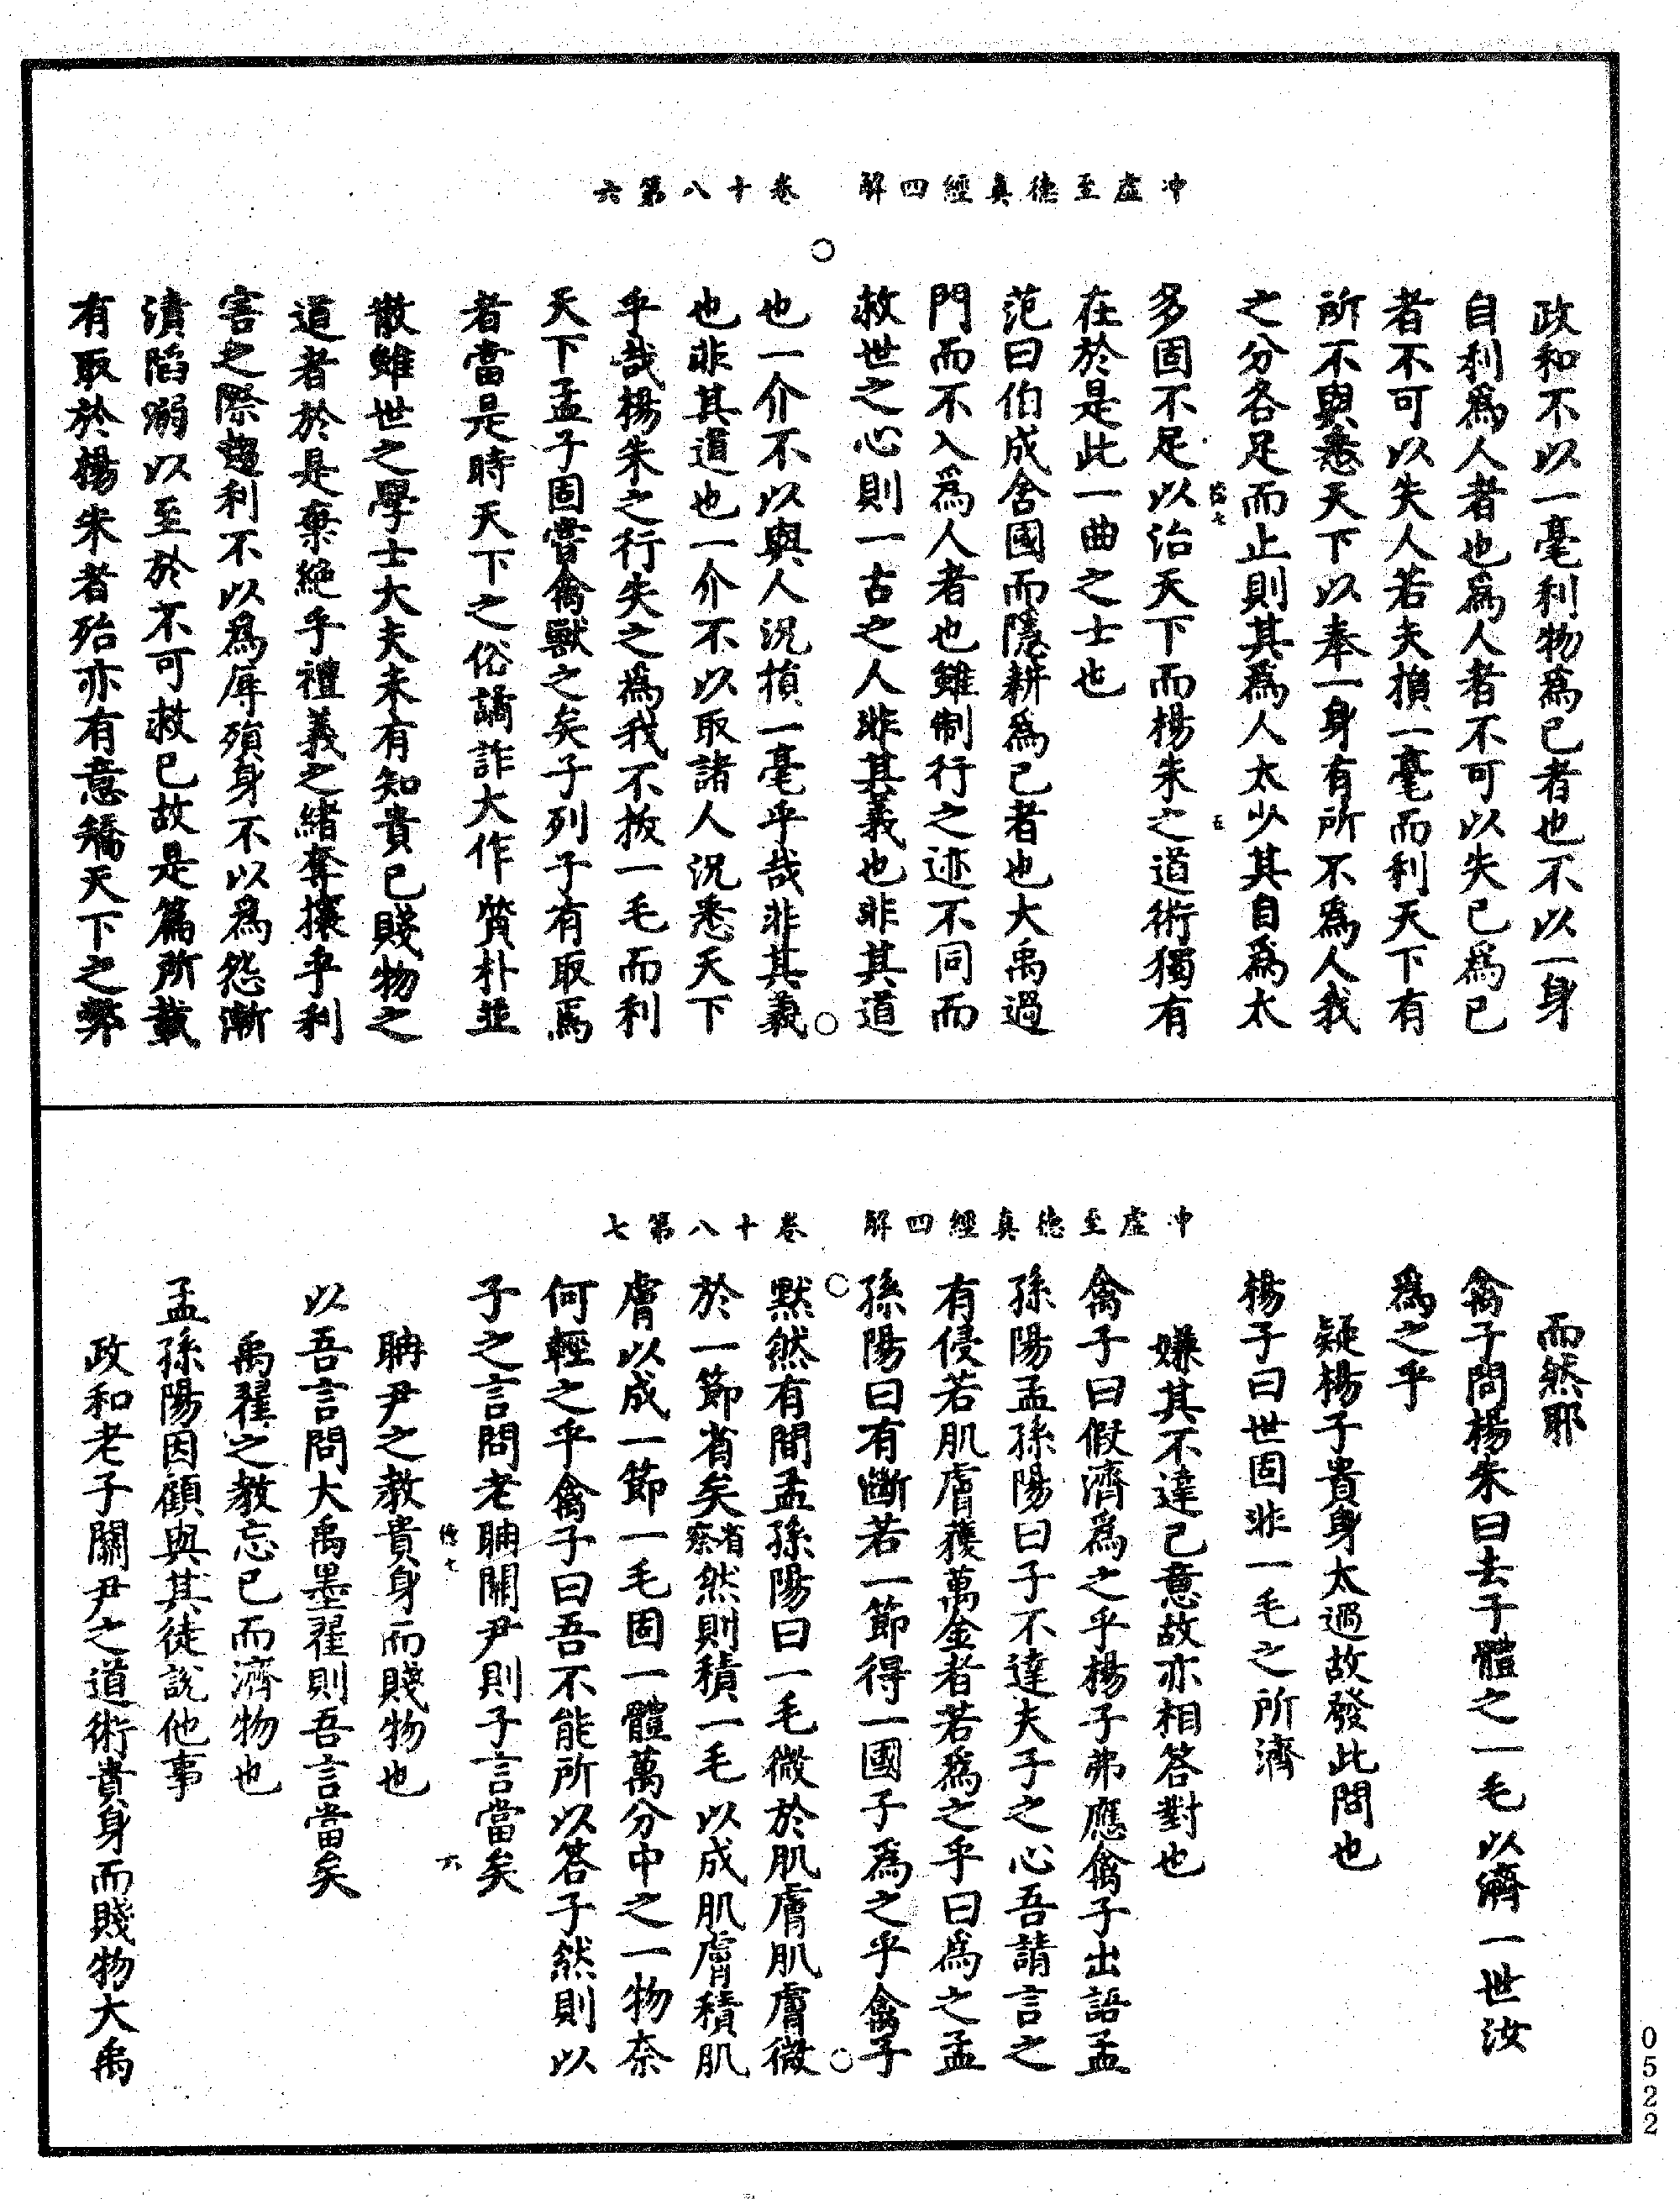 冲虛至德真經四解　卷十八第六
政和不以一毫利物爲己者也不以一身
自利爲人者也爲人者不可以失己爲己
者不可以失人若夫損一毫而利天下有
所不與悉天下以奉一身有所不爲人我
之分各足而止則其爲人太少其自爲太
多固不足以治天下而楊朱之道術獨有
在於是此一曲之士也
范曰伯成舍國而隱耕爲己者也大禹過
門而不入爲人者也雖制行之迹不同而
救世之心則一古之人非其義也非其道
也一介不以與人況損一毫乎哉非其義
也非其道也一介不以取諸人況悉天下
乎哉楊朱之行失之爲我不拔一毛而利
天下孟子固嘗禽獸之矣子列子有取焉
者當是時天下之俗譎詐大作質朴並
散雖世之學士大夫未有知貴己賤物之
道者於是棄絕乎禮義之緒奪攘乎利
害之際趨利不以爲辱殞身不以爲怨漸
漬陷溺以至於不可救已故是篇所載
有取於楊朱者殆亦有意矯天下之弊
冲虛至德真經四解　卷十八第七
而然耶
禽子問楊朱曰去子體之一毛以濟一世汝
爲之乎
疑楊子貴身太過故發此問也
楊子曰世固非一毛之所濟
嫌其不達己意故亦相答對也
禽子曰假濟爲之乎楊子弗應禽子出語孟
孫陽孟孫陽曰子不達夫子之心吾請言之
有侵若肌膚獲萬金者若爲之乎曰爲之孟
孫陽曰有斷若一節得一國子爲之乎禽子
默然有間孟孫陽曰一毛微於肌膚肌膚微
於一節省矣省察然則積一毛以成肌膚積肌
膚以成一節一毛固一體萬分中之一物奈
何輕之乎禽子曰吾不能所以答子然則以
子之言問老聃關尹則子言當矣
聃尹之教貴身而賤物也
以吾言問大禹墨翟則吾言當矣
禹翟之教忘己而濟物也
孟孫陽因顧與其徒説他事
政和老子關尹之道術貴身而賤物大禹
0522